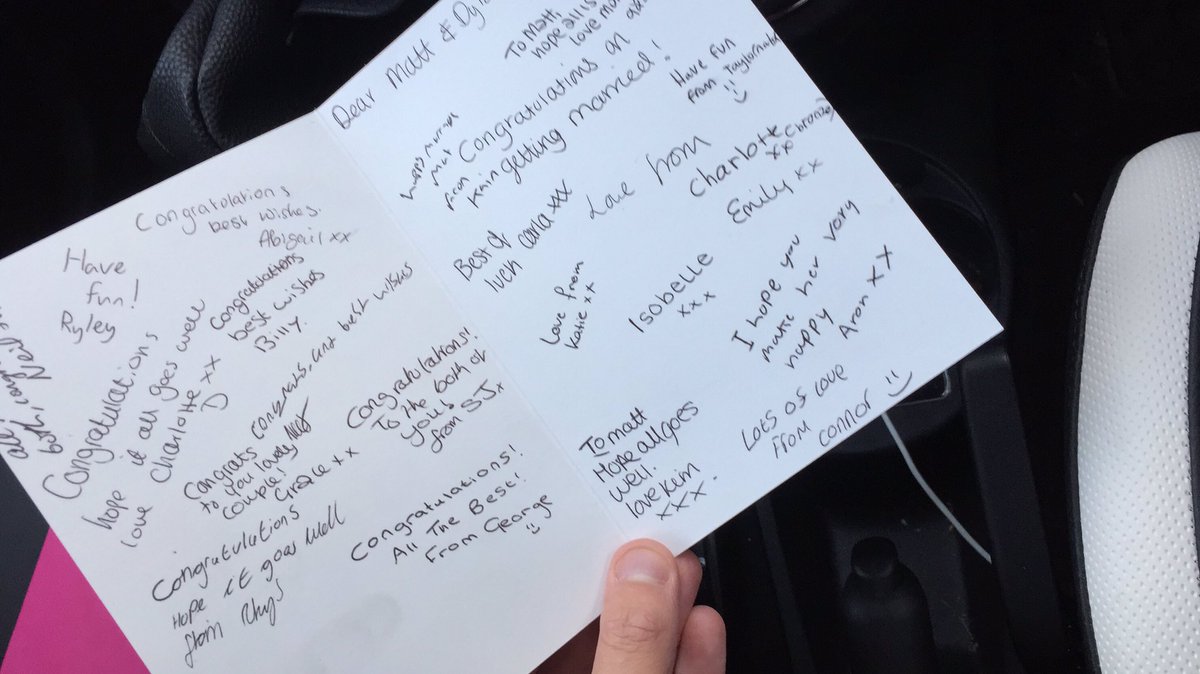 Congratolations
best wishes.
Abigail xx
Have
fun!
Ryley
Congratulations
best wishes
Billy.
Congratulations
hope it all goes well
love Charlotte xx
D
congrats, and best wishes
Congrats
to you lovely
couple!
Grace xx
Congratulations!
To the both of
yous
from SJx
Congratulations
Hope it goes well
from Rhys
Congratulations!
All The Best!
From George
Dear Matt &
To Matt
hope all is
love
Congratulations on
getting married!
Have fun
from
matt
from
Love from
Charlotte
xx
Emily xx
Best of
luck carla xxx
Love from
Katie xx
Isobelle
xxx
I hope you
make her very
happy
Aron xx
To matt
Hope all goes
well.
love Kim
xxx.
Lots of love
from connor